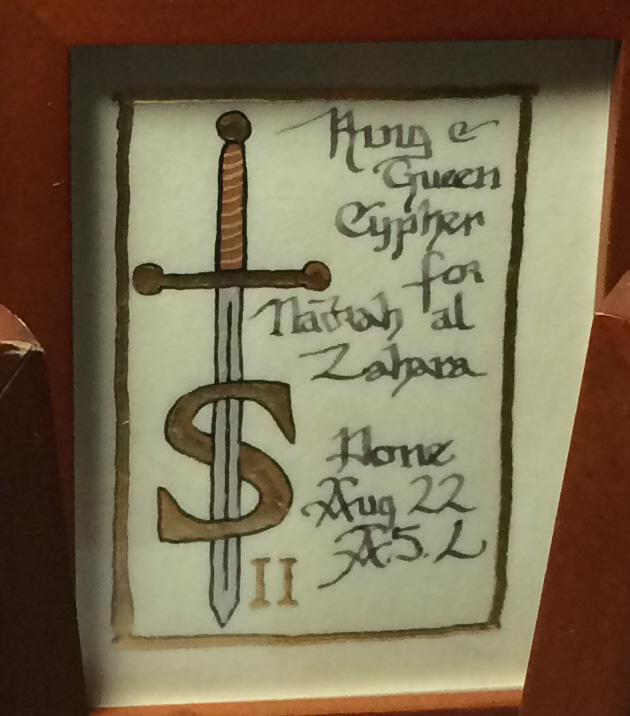 King &
Queen
Cypher
for
al
Zahara
S
II
Done
Aug 22
A.S. L